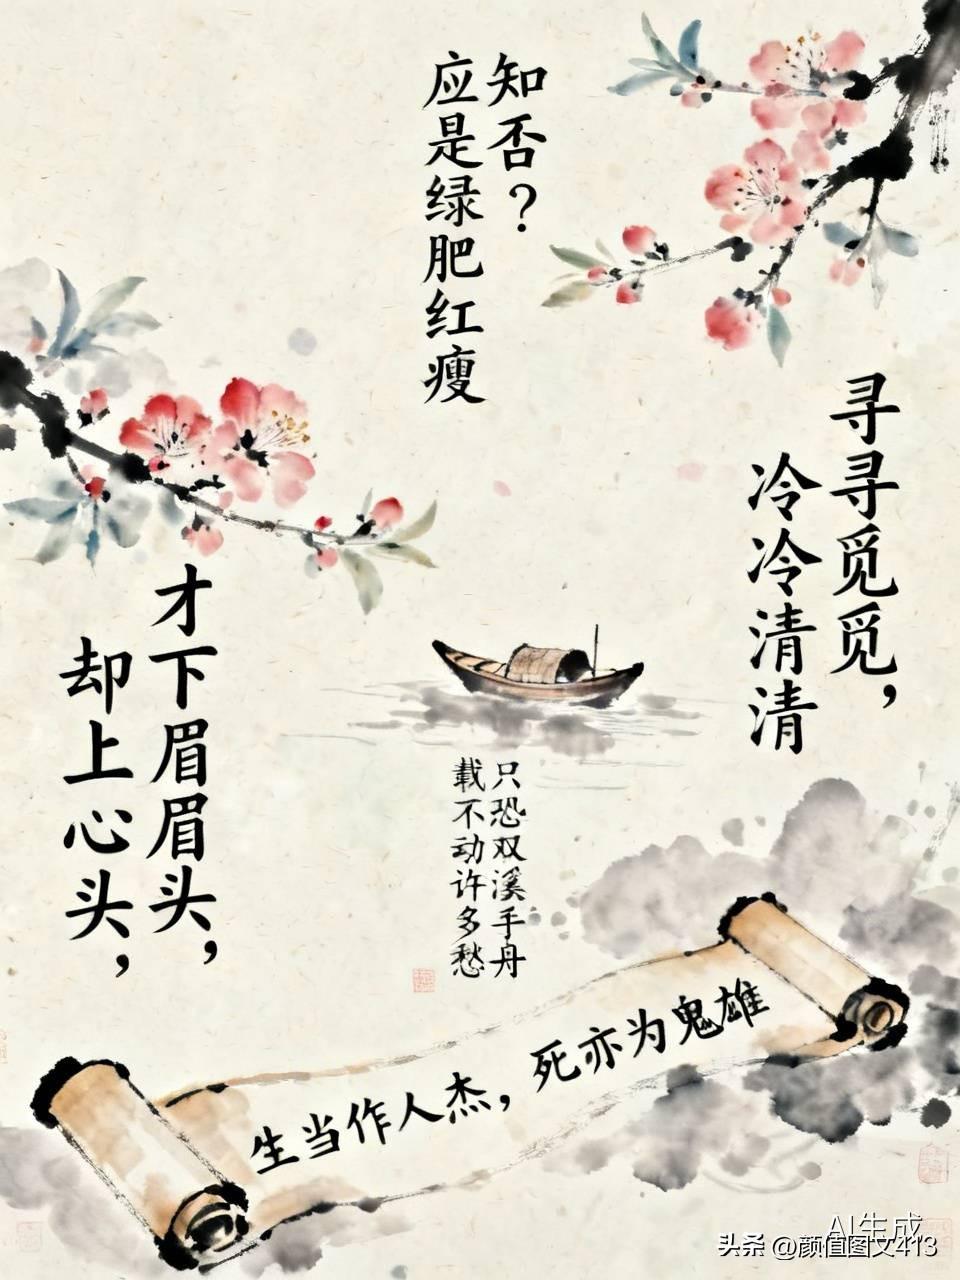 知否？
应是绿肥红瘦
寻寻觅觅，
冷冷清清
才下眉眉头，
却上心头，
只恐双溪手舟
載不动许多愁
生当作人杰，死亦为鬼雄
AI生成
头条 @颜值图文413